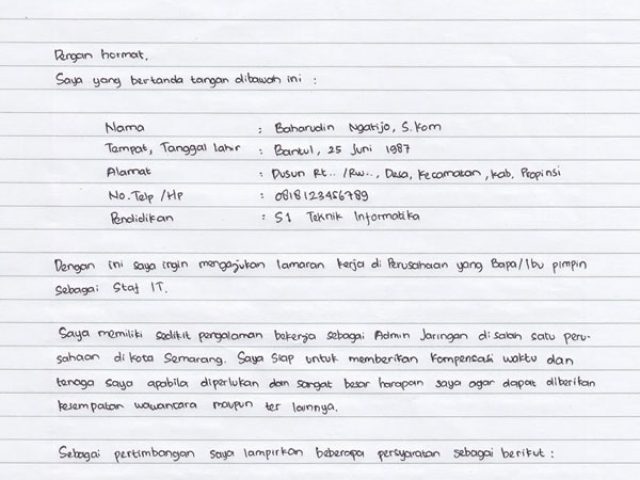 Dengan hormat,
Saya yang bertanda tangan dibawah ini :
Nama : Baharudin Ngatijo, S.Kom
Tempat, Tanggal lahir : Bantul, 25 Juni 1987
Alamat : Dusun Rt.. /Rw.., Desa, Kecamatan, Kab, Propinsi
No. Telp /Hp : 0818123456789
Pendidikan : S1 Teknik Informatika
Dengan ini saya ingin mengajukan lamaran kerja di Perusahaan yang Bapa/Ibu pimpin
sebagai Staf IT.
Saya memiliki sedikit pengalaman bekerja sebagai Admin Jaringan di salah satu peru-
sahaan di kota Semarang. Saya siap untuk memberikan kompensasi waktu dan
tenaga saya apabila diperlukan dan sangat besar harapan saya agar dapat diberikan
kesempatan wawancara maupun tes lainnya.
Sebagai pertimbangan saya lampirkan beberapa persyaratan sebagai berikut :